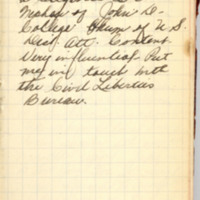 Maker of John D.
College Chum of U.S.
Dist. Att. Content
Very influential. Put
me in touch with
the Civil Liberties
Bureau.